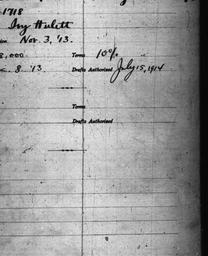 1718
Ivy Hulett
Nov. 3, '13.
8,000 Terms 10%
8 '13 Drafts Authorized July 15, 1914
Terms
Drafts Authorized